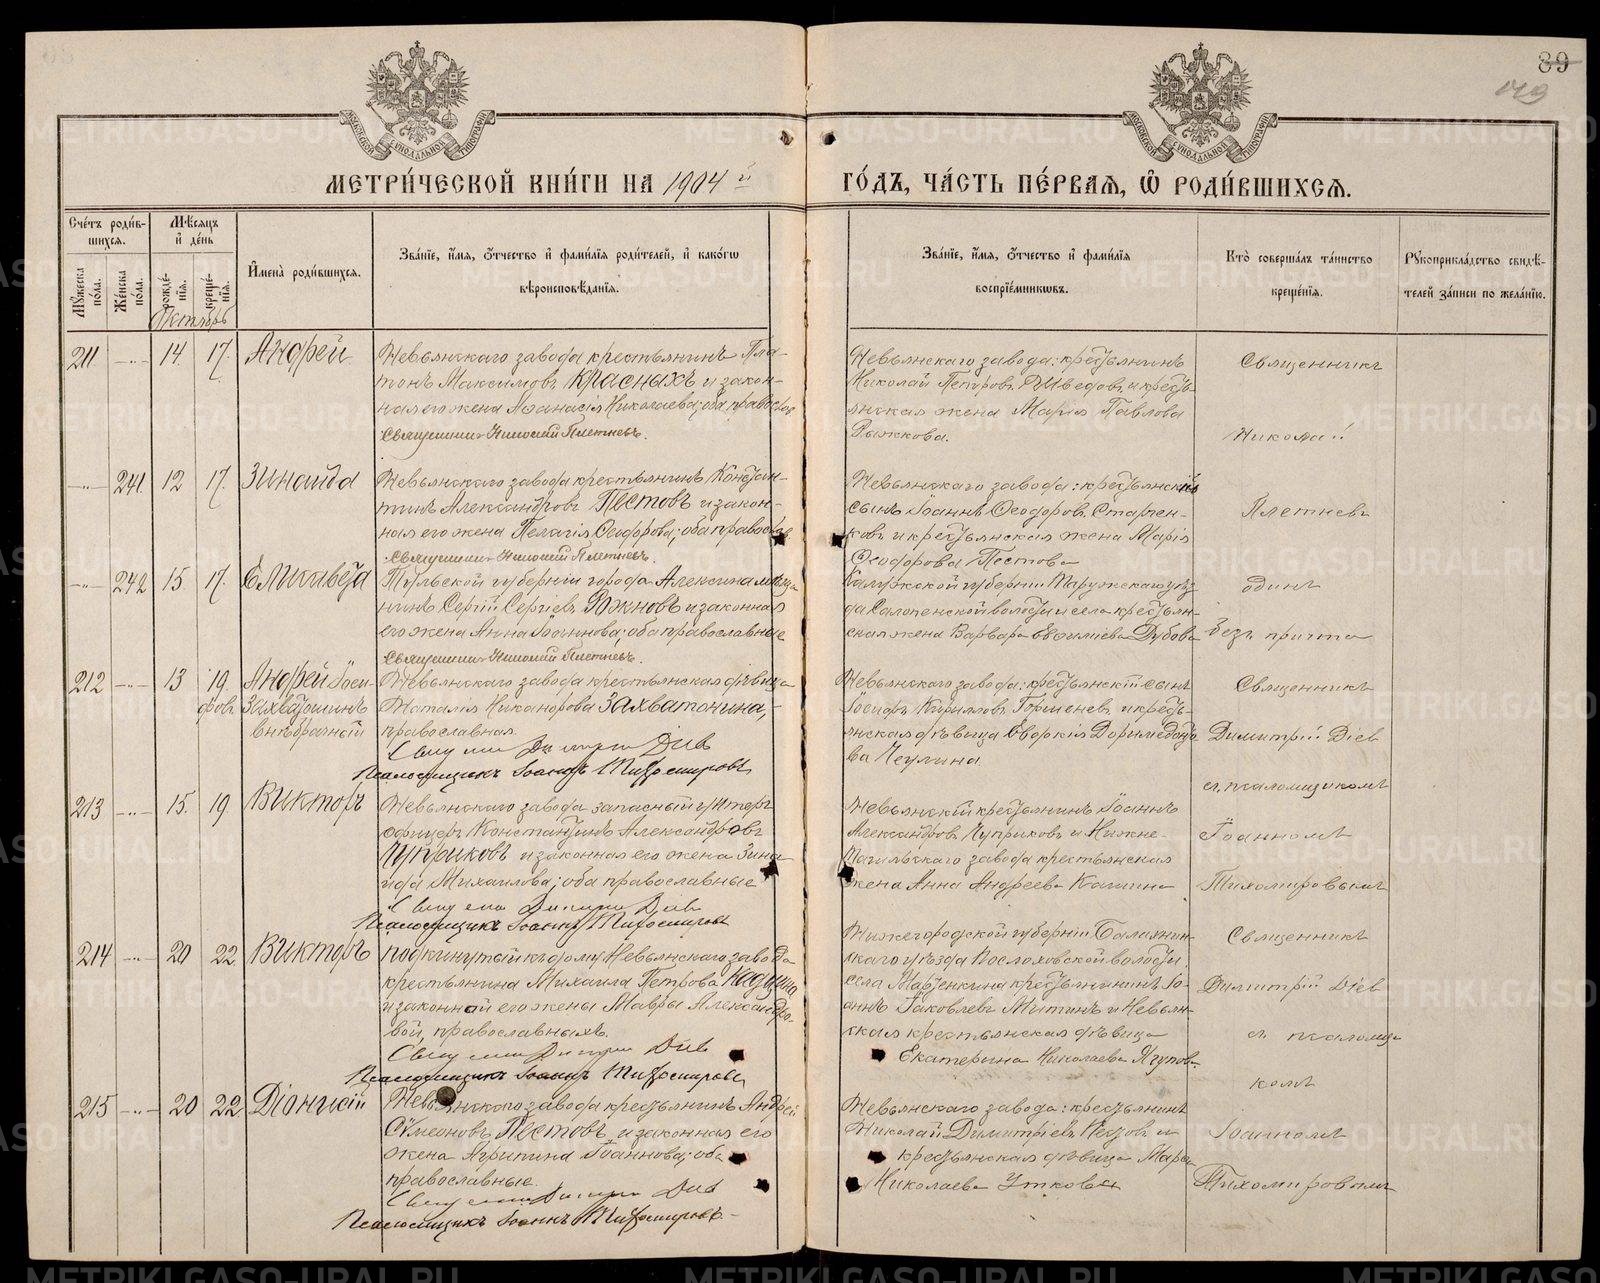 89
МЕТРИ́ЧЕСКОЙ КНИ́ГИ НА 1904 й
ГО́ДЪ, ЧА́СТЬ ПЕ́РВАЯ, Ѡ РОДИ́ВШИХСЯ.
Сче́тъ роди́в-
шихся.
Мꙋжеска
по́ла.
Же́нска
по́ла.
Мѣ́сяцъ
и де́нь
рожде́-
нія.
креще́-
нія.
Октябрь
Имена̀ роди́вшихся.
Зва́ніе, и́мя, о́тчество и фами́лія роди́телей, и како́гѡ
вѣроисповѣ́данія.
Зва́ніе, и́мя, о́тчество и фами́лія
воспріе́мникѡвъ.
Кто̀ соверша́лъ та́инство
креще́нія.
Рꙋкоприкла́дство свидѣ́-
телей за́писи по жела́нію.
211 —"— 14 17 Андрей
Невьянскаго завода крестьянинъ Пла-
тонъ Максимовъ Красныхъ и закон-
ная его жена Аѳанасія Николаева; оба православ
Священникъ Николай Плетневъ.
Невьянскаго завода: крестьянинъ
Николай Петровъ Шведовъ и кресть-
янская жена Марія Павлова
Рыжкова.
Священникъ
Николай
—"— 241 12 17 Зинаида
Невьянскаго завода крестьянинъ Констан-
тинъ Александровъ Пестовъ и закон-
ная его жена Пелагія Ѳеодорова; оба православ
Священникъ Николай Плетневъ.
Невьянскаго завода: крестьянскій
сынъ Іоаннъ Ѳеодоровъ Старчен-
ковъ и крестьянская жена Марія
Ѳеодорова Пестова
Плетневъ
—"— 242 15 17 Елисавета
Тульской губерніи города Алексина мѣща
нинъ Сергій Сергіевъ Южновъ и законная
его жена Анна Іоаннова; оба православные
Священникъ Николай Плетневъ.
Калужской губерніи Тарузскаго уѣз
да Салопенской волости и села кресть-
ская жена Варвара Евфиміева Дубова
одинъ
безъ причта
212 —"— 13 19 Андрей Іоси-
фовъ Захватошинъ
внѣбрачный
Невьянскаго завода крестьянская дѣвица
Наталія Никандрова Захватошина,
православная.
Священникъ Димитрій Діевъ
Псаломщикъ Іоаннъ Тихомировъ
Невьянскаго завода: крестьянскій сынъ
Іосифъ Кирилловъ Горшеневъ и кресть-
янская дѣвица Евдокія Доримедонто
ва Чеулина
Священникъ
Димитрій Діевъ
съ псаломщикомъ
213 —"— 15 19 Викторъ
Невьянскаго завода запасный унтеръ
офицеръ Константинъ Александровъ
Чуприковъ и законная его жена Зина
ида Михаилова; оба православные
Священникъ Димитрій Діевъ
Псаломщикъ Іоаннъ Тихомировъ
Невьянскій крестьянинъ Іоаннъ
Александровъ Чуприковъ и Нижне-
Тагильскаго завода крестьянская
жена Анна Андреева Камина
Іоанномъ
Тихомировымъ
214 —"— 20 22 Викторъ
подкинутый къ дому Невьянскаго завода
крестьянина Михаила Петрова Кадцина
и законной его жены Мавры Александро-
вой, православныхъ.
Священникъ Димитрій Діевъ
Псаломщикъ Іоаннъ Тихомировъ
Нижегородской губерніи Балахнин-
скаго уѣзда волости
села крестьянинъ Іо-
аннъ Іаковлевъ Митинъ и Невьян-
ская крестьянская дѣвица
Екатерина Николаева Ягупова
Священникъ
Димитрій Діевъ
съ псаломщи
комъ
215 —"— 20 22 Діонисій
Невьянскаго завода крестьянинъ Андрей
Сѵмеоновъ Пестовъ и законная его
жена Агрипина Іоаннова; оба
православные.
Священникъ Димитрій Діевъ
Псаломщикъ Іоаннъ Тихомировъ.
Невьянскаго завода: крестьянинъ
Николай Димитріевъ и
крестьянская дѣвица Марія
Николаева Уткова
Іоанномъ
Тихомировымъ